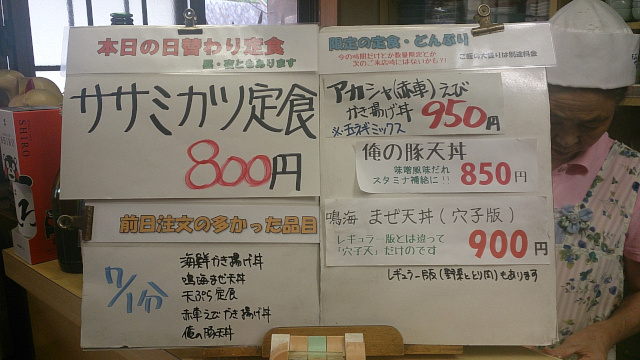 本日の日替わり定食
昼・夜ともあります
ササミカツ定食
800円
前日注文の多かった品目
7/1分
海鮮かき揚げ丼
鳴海まぜ天丼
天ぷら定食
赤車えびかき揚げ丼
俺の豚天丼
限定の定食・どんぶり
今の時期だけとか数量限定とか
次のご来店時にはないかも?!
ご飯の大盛りは別途料金
アカシャ(赤車)えび
かき揚げ丼 950円
※玉ネギミックス
俺の豚天丼
味噌風味だれ
スタミナ補給に!! 850円
鳴海 まぜ天丼(穴子版)
レギュラー版とは違って
「穴子天」だけのです 900円
レギュラー版(野菜ととり肉)もあります
SHIRO